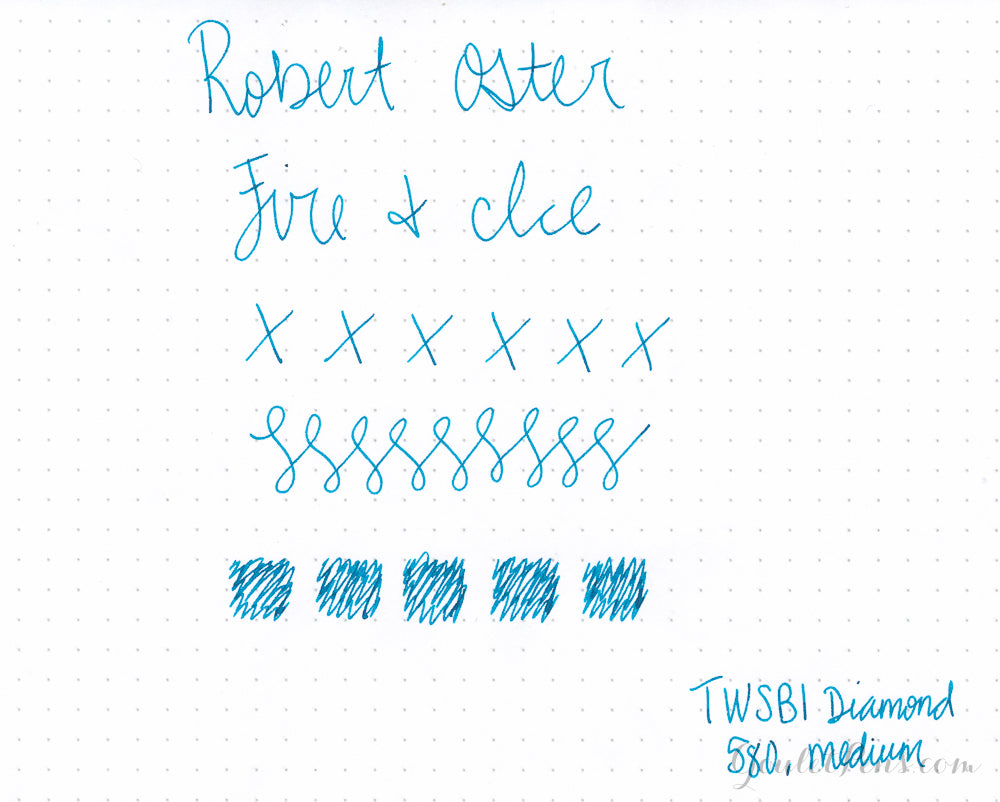 Robert Oster
Fire & Ice
X X X X X X
TWSBI Diamond
580, medium
GouletPens.com